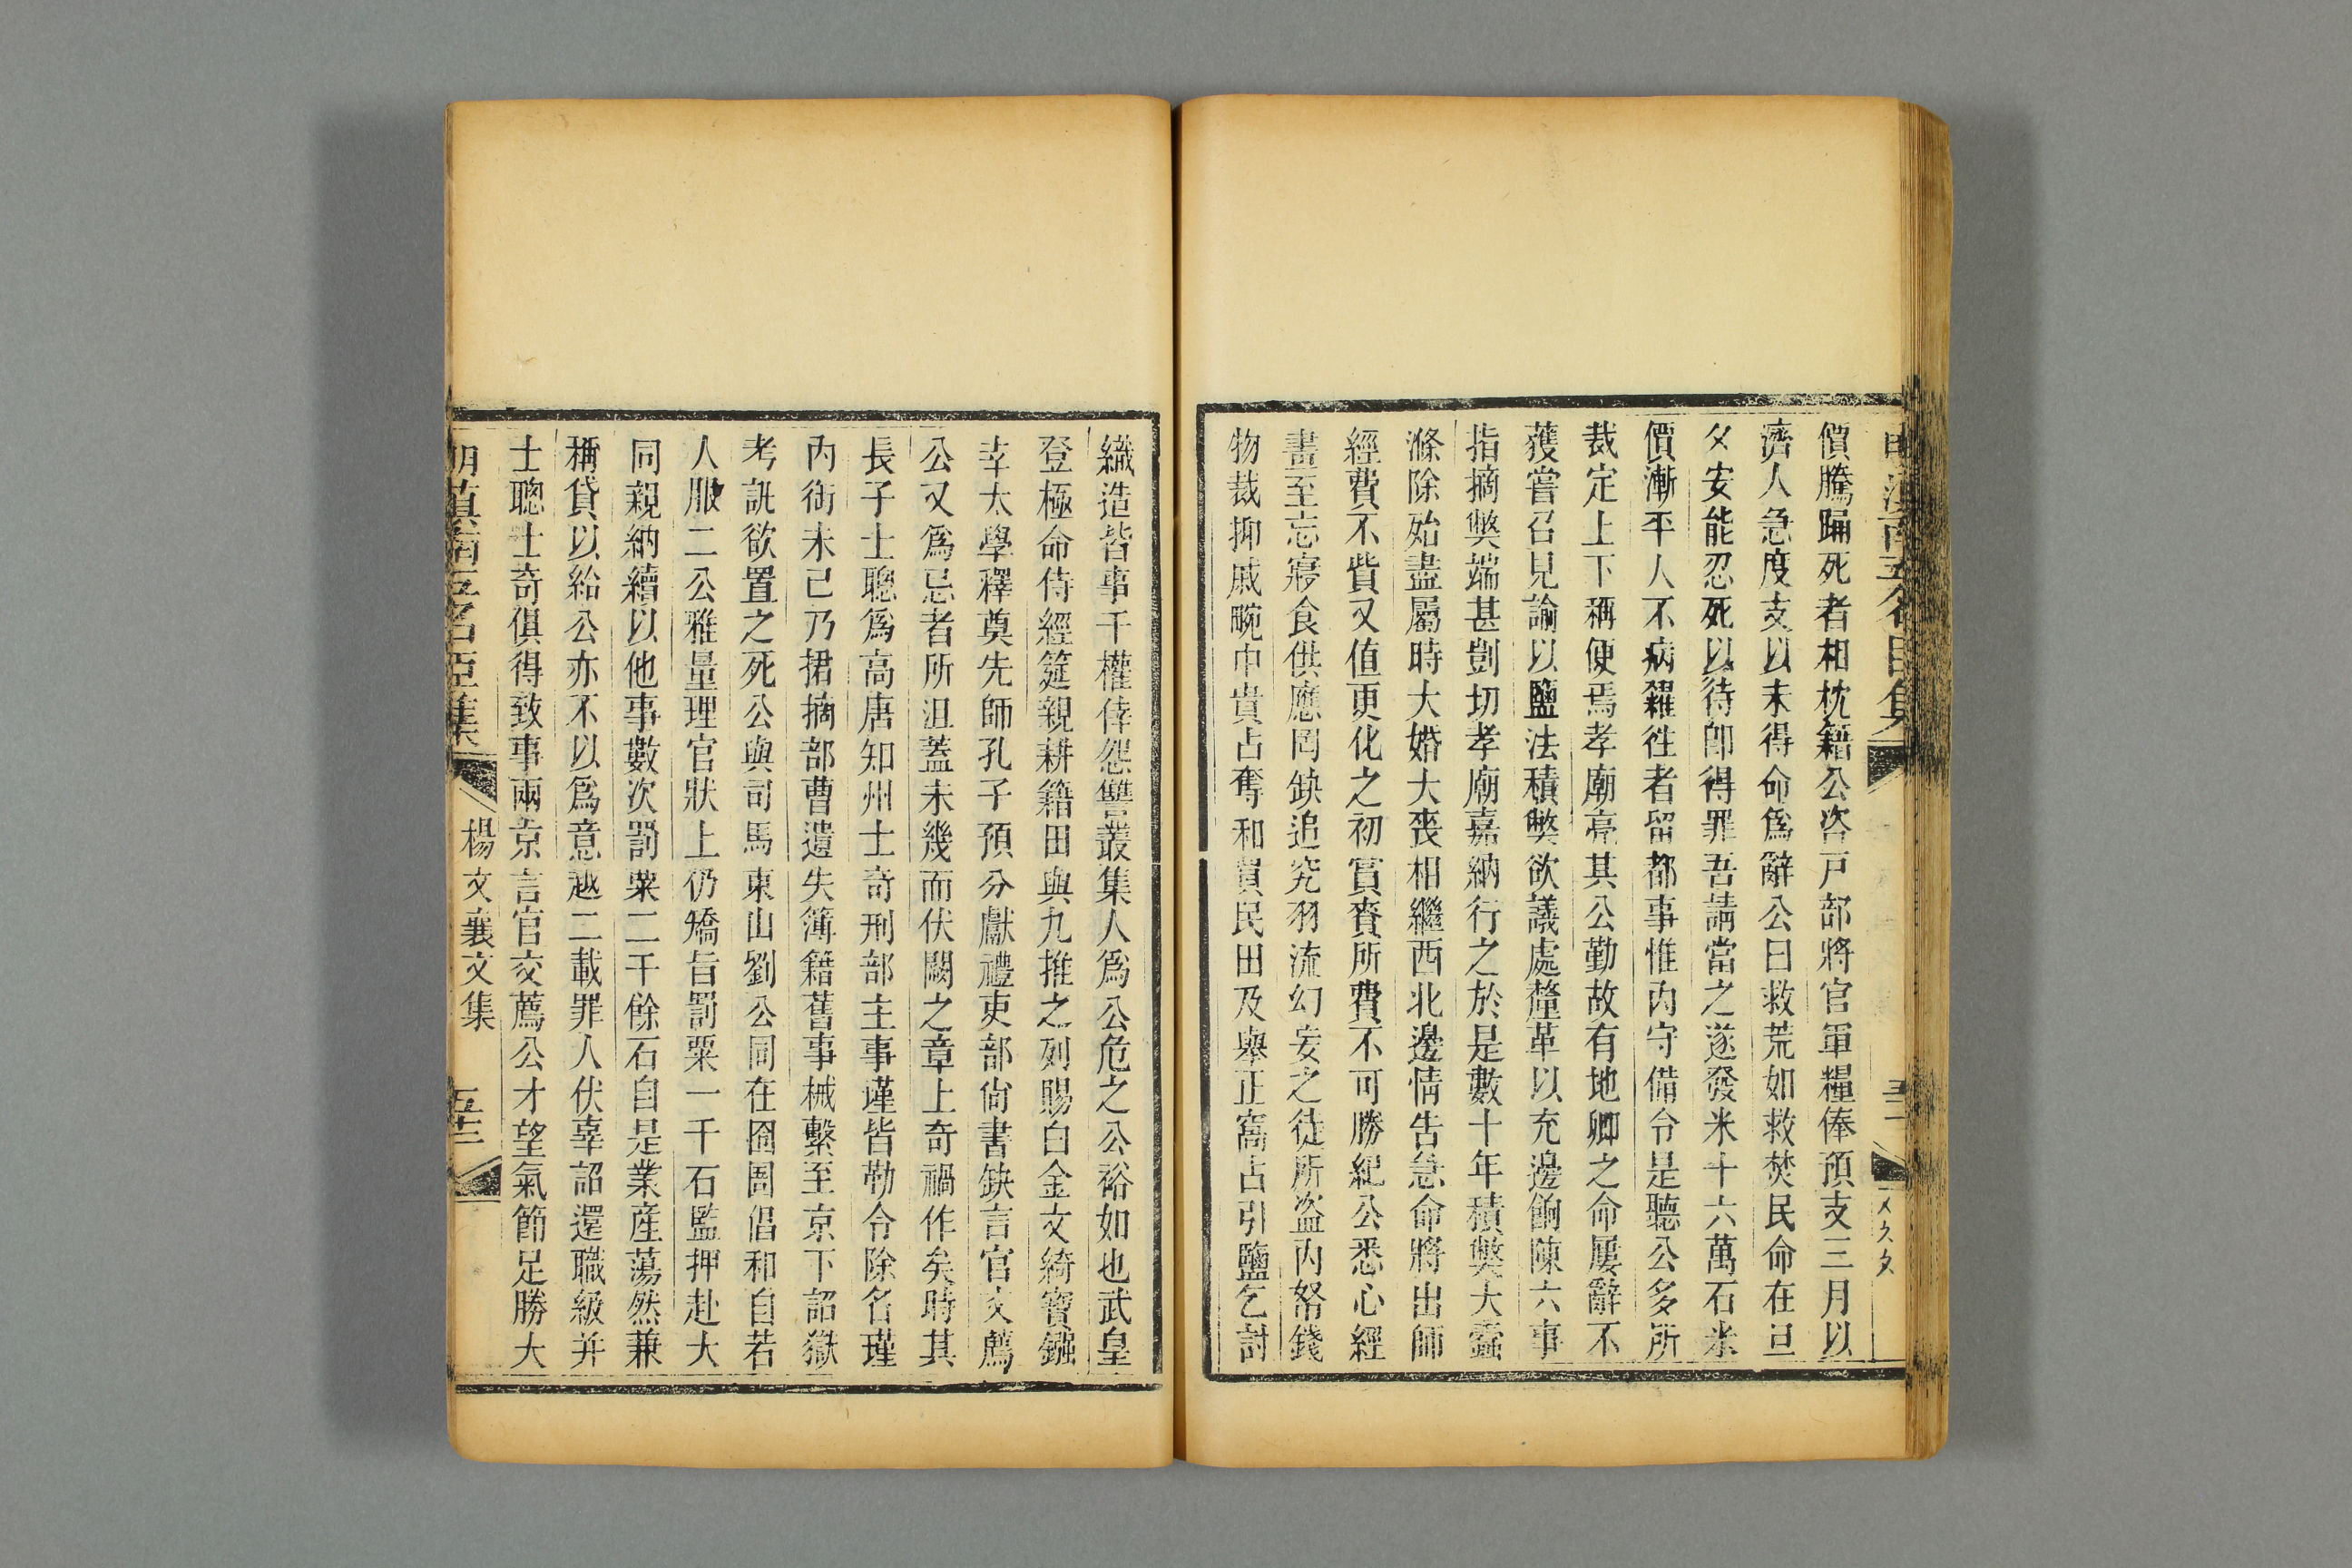 價騰踊死者相枕籍公咨戸部將官軍糧俸預支三月以
濟人急度支以未得命爲辭公曰救荒如救焚民命在旦
夕安能忍死以待卽得罪吾請當之遂發米十六萬石米
價漸平人不病糴徃者留都事惟内守備令是聽公多所
裁定上下稱便焉孝廟亮其公勤故有地卿之命屢辭不
獲嘗召見諭以鹽法積弊欲議處釐革以充邊餉陳六事
指摘弊端甚剴切孝廟嘉納行之於是數十年積弊大蠹
滌除殆盡屬時大婚大喪相繼西北邊情告急命將出師
經費不貲又值更化之初賞賚所費不可勝紀公悉心經
畫至忘寢食供應罔缺追究羽流幻妄之徒所盜内帑錢
物裁抑戚畹中貴占奪和買民田及舉正窩占引鹽乞討
織造皆事干權倖怨讐叢集人爲公危之公裕如也武皇
登極命侍經筵親耕籍田與九推之列賜白金文綺寶鏹
幸太學釋奠先師孔子預分獻禮吏部尙書缺言官交薦
公又爲忌者所沮蓋未幾而伏闕之章上奇禍作矣時其
長子士聰爲高唐知州士奇刑部主事瑾皆勒令除名瑾
内銜未已乃捃摘部曹遺失簿籍舊事械繫至京下詔獄
考訊欲置之死公與司馬東山劉公同在囹圄倡和自若
人服二公雅量理官狀上仍矯旨罰粟一千石監押赴大
同親納續以他事數次罰粟二千餘石自是業産蕩然兼
稱貸以給公亦不以爲意越二載罪人伏辜詔還職級并
士聰士奇俱得致事兩京言官交薦公才望氣節足勝大
明滇南五名臣集 楊文襄文集 五十三